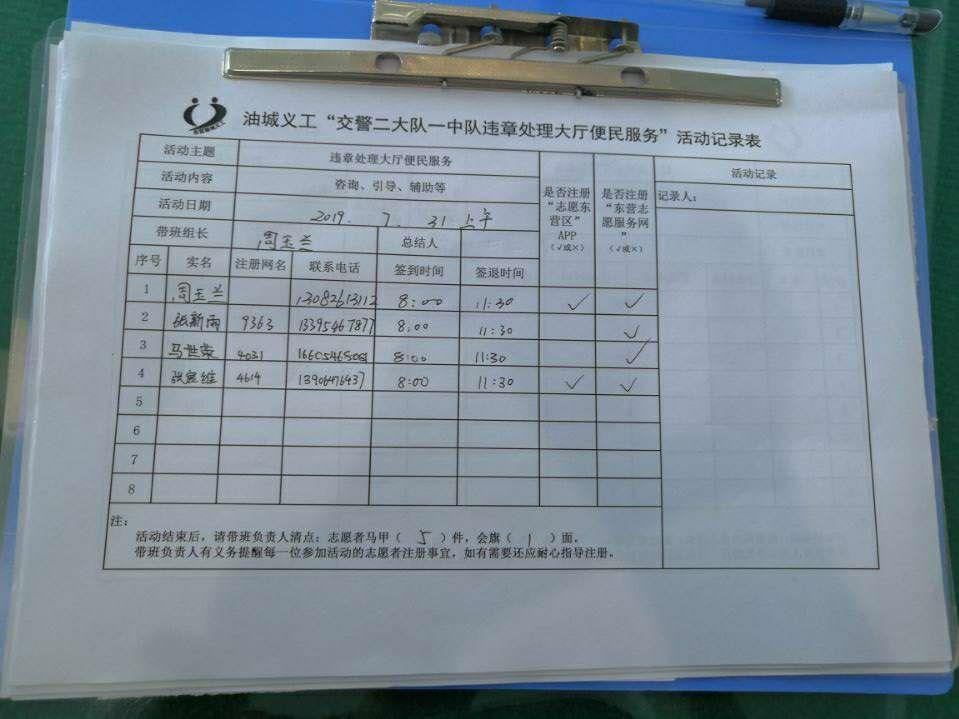 油城义工“交警二大队一中队违章处理大厅便民服务”活动记录表
活动主题 违章处理大厅便民服务 是否注册“志愿东营区”APP（√或×） 是否注册“东营志愿服务网”（√或×） 活动记录
活动内容 咨询、引导、辅助等 记录人：
活动日期 2019. 7. 31 上午
带班组长 周玉兰 总结人
序号 实名 注册网名 联系电话 签到时间 签退时间
1 周玉兰 13082613112 8:00 11:30 √ √
2 张新雨 9363 13395467877 8:00 11:30 √
3 马世荣 4031 8:00 11:30 √
4 4614 13906476437 8:00 11:30 √ √
5
6
7
8
注：
活动结束后，请带班负责人清点：志愿者马甲（ 5 ）件，会旗（ 1 ）面。
带班负责人有义务提醒每一位参加活动的志愿者注册事宜，如有需要还应耐心指导注册。